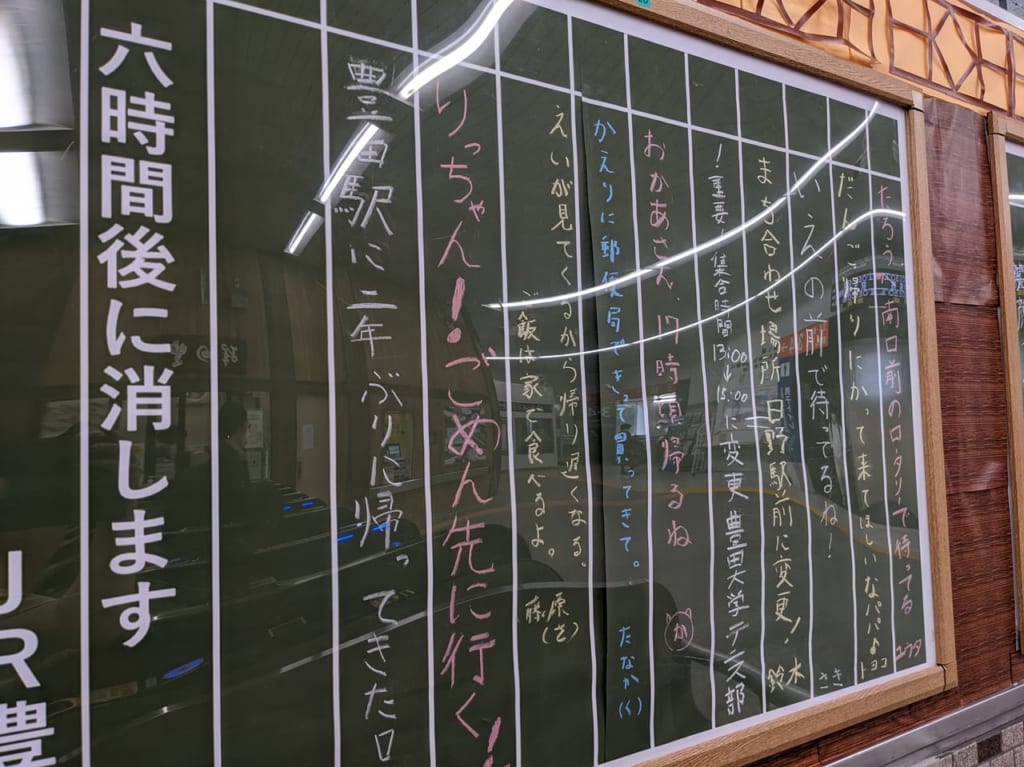 たろうへ南口前のロータリーで待ってる ユウタ
だんご帰りにかって来てほしいなパパよ トヨコ
いえの前で待ってるね! さき
まち合わせ場所 日野駅前に変更! 鈴木
!重要! 集合時間13:00→15:00に変更 豊田大学テニス部
おかあさん、17時頃帰るね か
かえりに郵便局できって買ってきて。 たなか(く)
えいが見てくるから帰り遅くなる。
ご飯は家で食べるよ。 藤原(さ)
りっちゃん!ごめん先に行く!
豊田駅に二年ぶりに帰ってきた口
六時間後に消します
JR豊